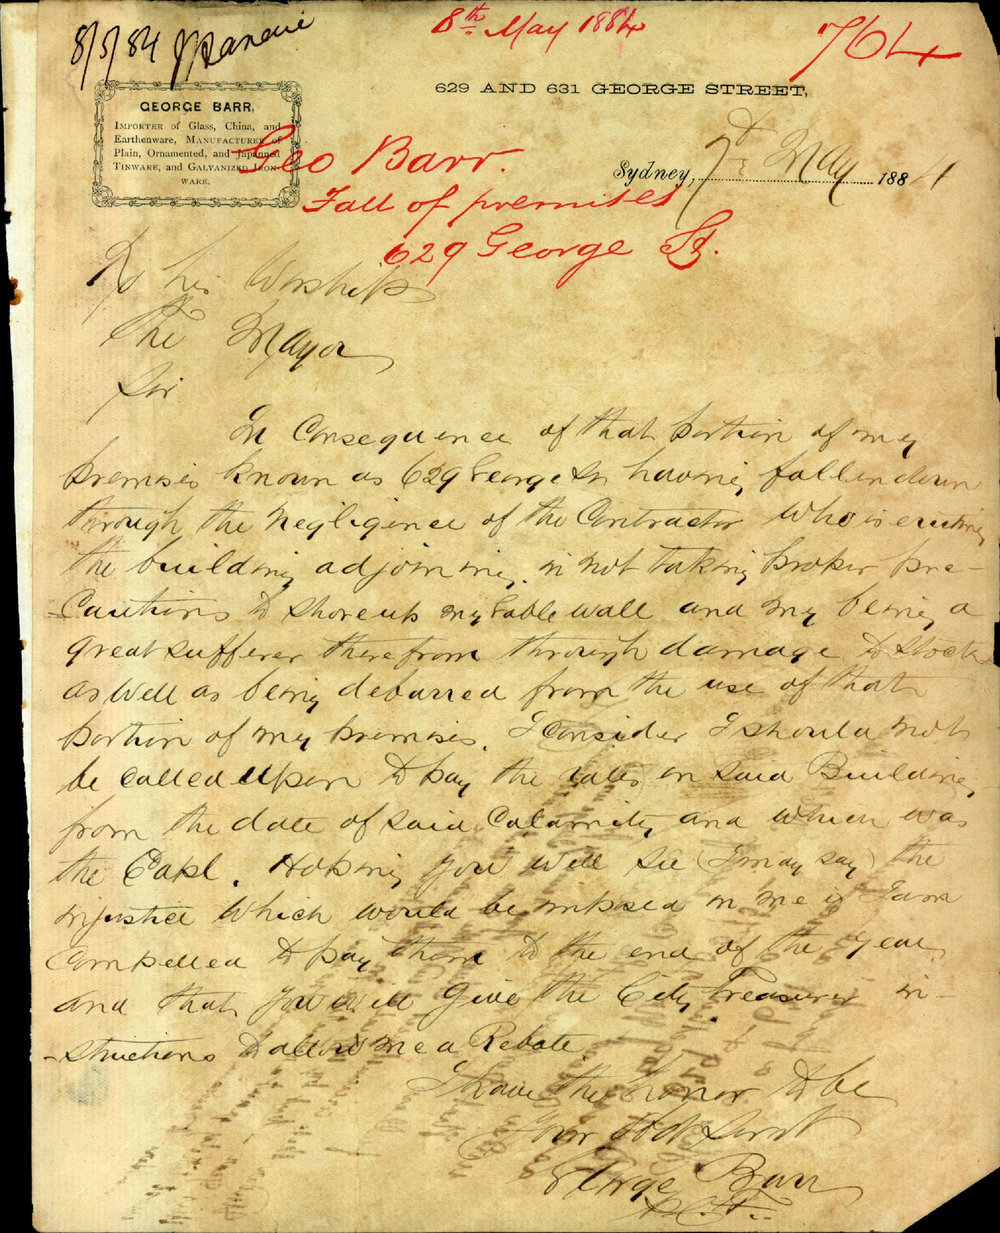 8/5/84
8th May 1884
764
GEORGE BARR,
IMPORTER of Glass, China, and
Earthenware, MANUFACTURER of
Plain, Ornamented, and Japanned
TINWARE, and GALVANIZED IRON-
WARE.
629 AND 631 GEORGE STREET,
Geo Barr.
Fall of premises
629 George St.
Sydney, 7th May 1884
To his Worship
The Mayor
Sir
In Consequence of that portion of my
premises known as 629 George St having fallen down
through the negligence of the Contractor who is erecting
the building adjoining, in not taking proper pre-
-cautions to shore up my gable wall and my being a
great sufferer therefrom through damage to stock
as well as being debarred from the use of that
portion of my premises. I consider I should not
be called upon to pay the rates on said Building,
from the date of said Calamity and which was
the Hoping you will see (I may say) the
injustice which would be imposed on me if I am
compelled to pay them to the end of the year,
and that you will give the City Treasurer in-
-structions to allow me a Rebate.
I have the honor to be
Your Obdt Servt
George Barr